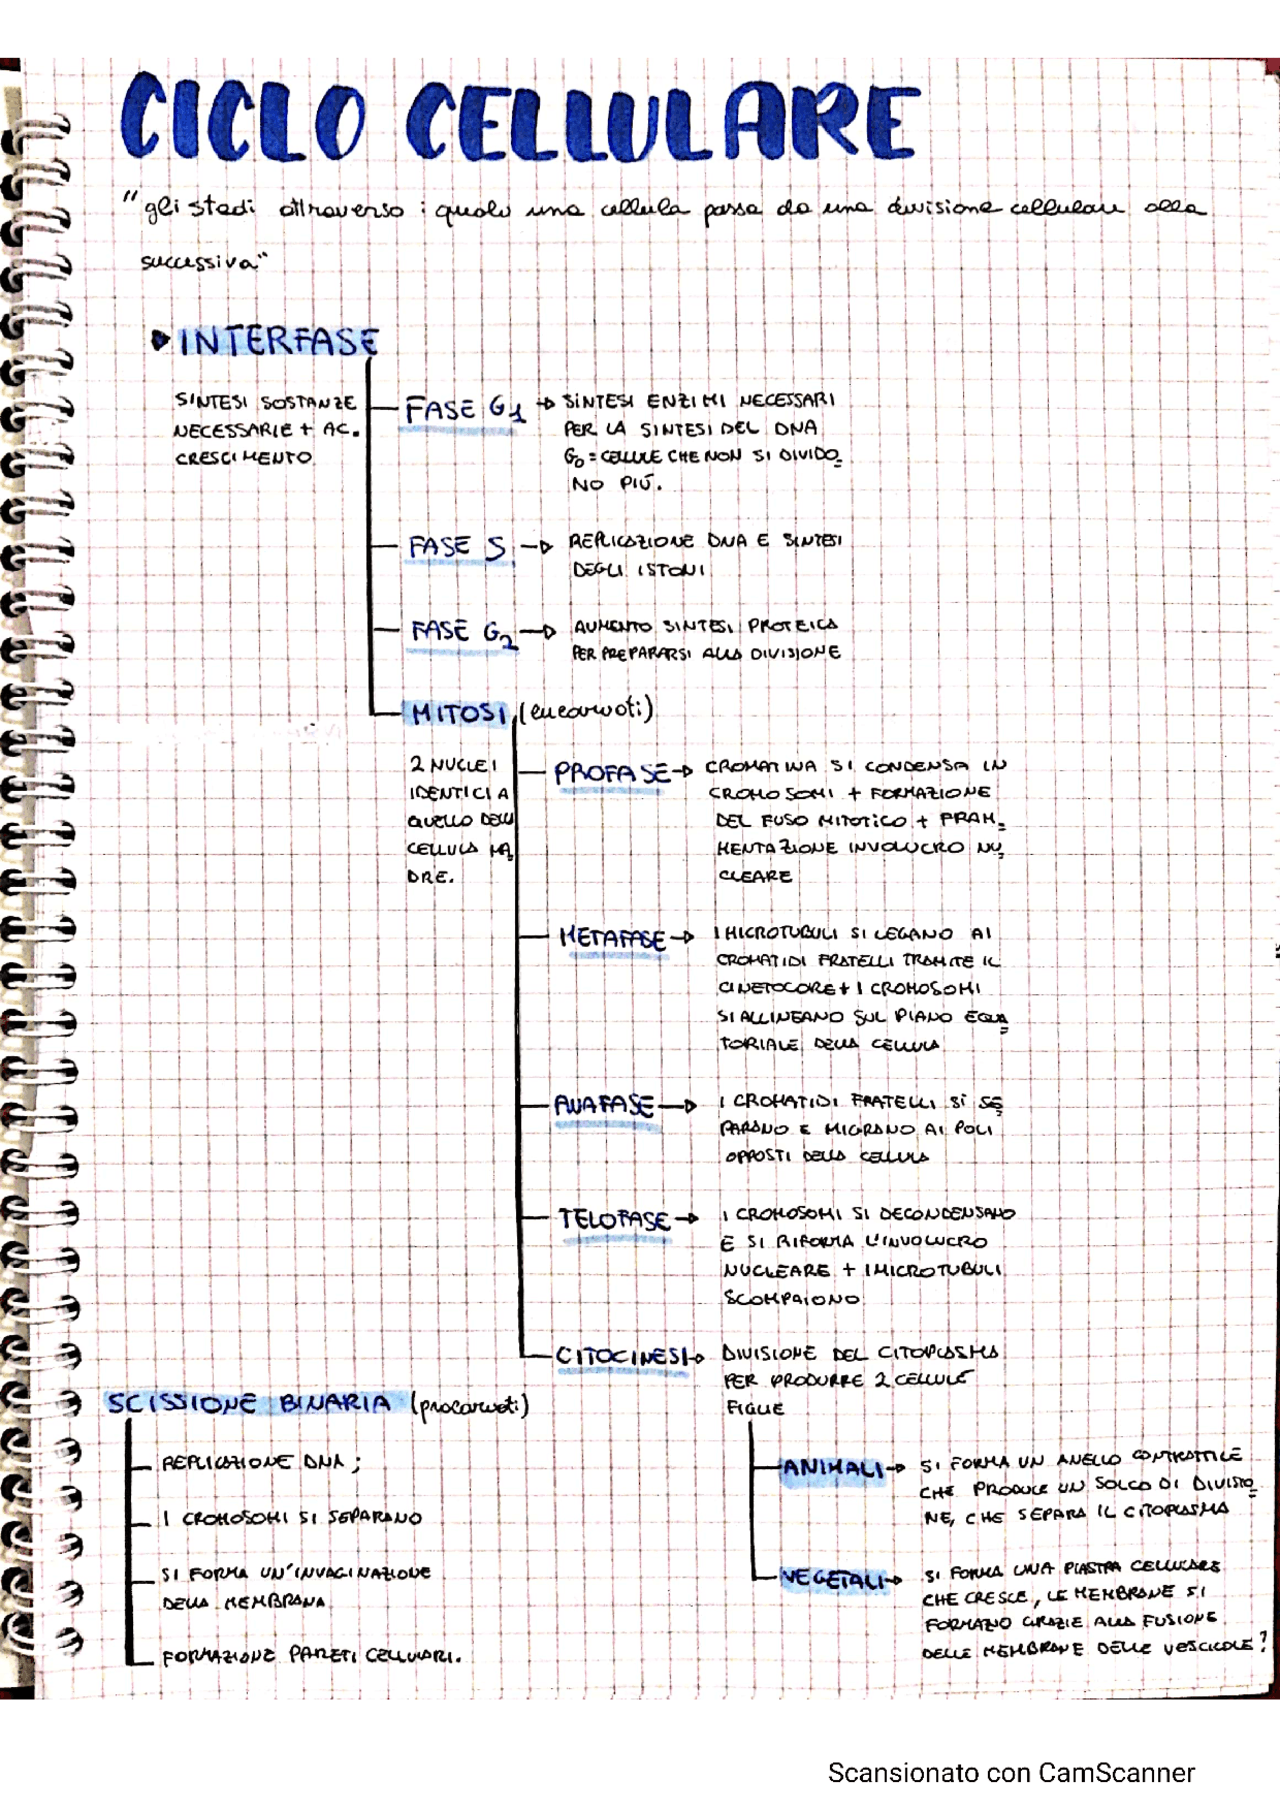 CICLO CELLULARE
"gli stadi attraverso i quali una cellula passa da una divisione cellulare alla
successiva"
INTERFASE
SINTESI SOSTANZE
NECESSARIE + AC.
CRESCIMENTO
FASE G1 → SINTESI ENZIMI NECESSARI
PER LA SINTESI DEL DNA
G0 = CELLULE CHE NON SI DIVIDO_
NO PIÚ.
FASE S → REPLICAZIONE DNA E SINTESI
DEGLI ISTONI
FASE G2 → AUMENTO SINTESI PROTEICA
PER PREPARARSI ALLA DIVISIONE
MITOSI (eucarioti)
2 NUCLEI
IDENTICI A
QUELLO DELLA
CELLULA MA_
DRE.
PROFASE → CROMATINA SI CONDENSA IN
CROMOSOMI + FORMAZIONE
DEL FUSO MITOTICO + FRAM_
MENTAZIONE INVOLUCRO NU_
CLEARE
METAFASE → I MICROTUBULI SI LEGANO AI
CROMATIDI FRATELLI TRAMITE IL
CINETOCORE + I CROMOSOMI
SI ALLINEANO SUL PIANO EQUA_
TORIALE DELLA CELLULA
ANAFASE → I CROMATIDI FRATELLI SI SE_
PARANO E MIGRANO AI POLI
OPPOSTI DELLA CELLULA
TELOFASE → I CROMOSOMI SI DECONDENSANO
E SI RIFORMA L'INVOLUCRO
NUCLEARE + I MICROTUBULI
SCOMPAIONO
CITOCINESI → DIVISIONE DEL CITOPLASMA
PER PRODURRE 2 CELLULE
FIGLIE
ANIMALI → SI FORMA UN ANELLO CONTRATTILE
CHE PRODUCE UN SOLCO DI DIVISIO_
NE, CHE SEPARA IL CITOPLASMA
VEGETALI → SI FORMA UNA PIASTRA CELLULARE
CHE CRESCE, LE MEMBRANE SI
FORMANO GRAZIE ALLA FUSIONE
DELLE MEMBRANE DELLE VESCICOLE?
SCISSIONE BINARIA (procarioti)
REPLICAZIONE DNA;
I CROMOSOMI SI SEPARANO
SI FORMA UN'INVAGINAZIONE
DELLA MEMBRANA
FORMAZIONE PARETI CELLULARI.
Scansionato con CamScanner